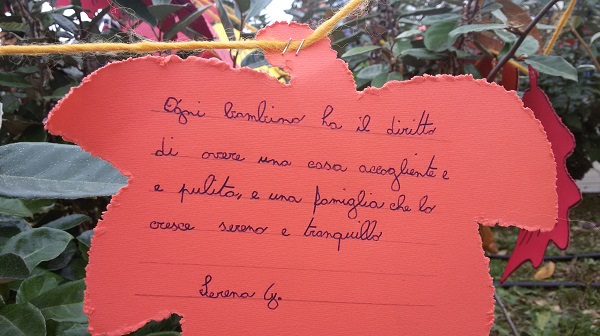 Ogni bambino ha il diritto
di avere una casa accogliente e
e pulita, e una famiglia che lo
cresce sereno e tranquillo
Serena G.